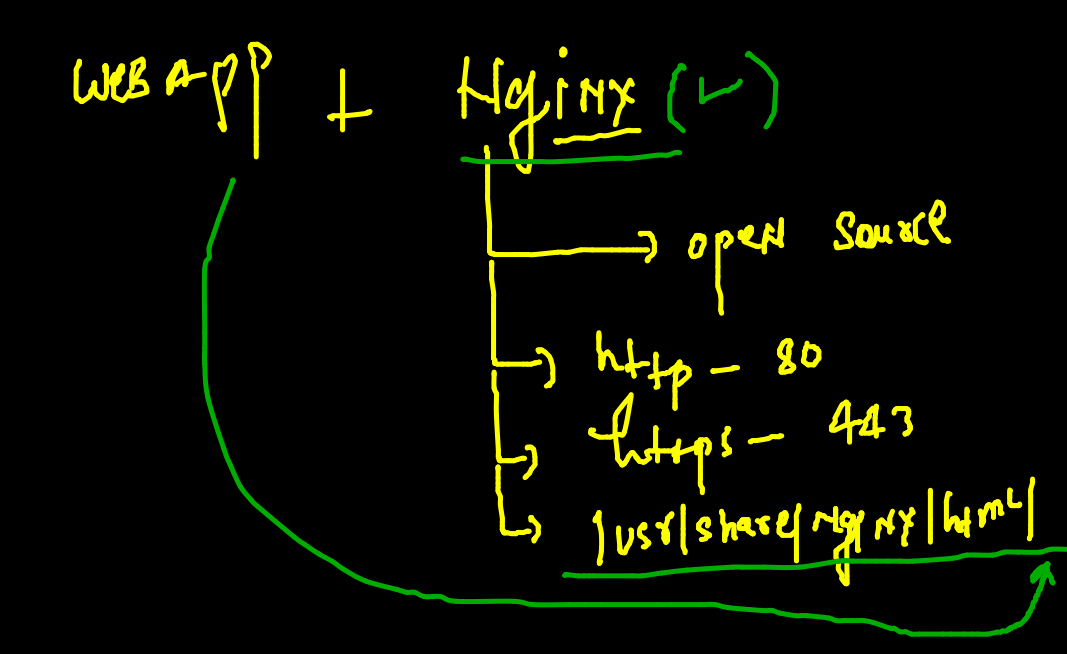 WEB App + Nginx (✓)
open source
http - 80
https - 443
/usr/share/Nginx/html/